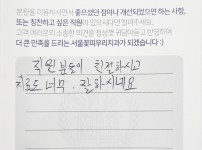 본원을 이용하시면서 좋으셨던 점이나 개선되었으면 하는 사항,
또는 칭찬하고 싶은 직원이 있으시다면 알려주세요.
고객 여러분의 소중한 의견을 정성껏 귀담아듣고 반영하여
더 큰 만족을 드리는 서울꽃피우리치과가 되겠습니다 :)
직원 분들이 친절하시고
치료도 너무 잘하시네요